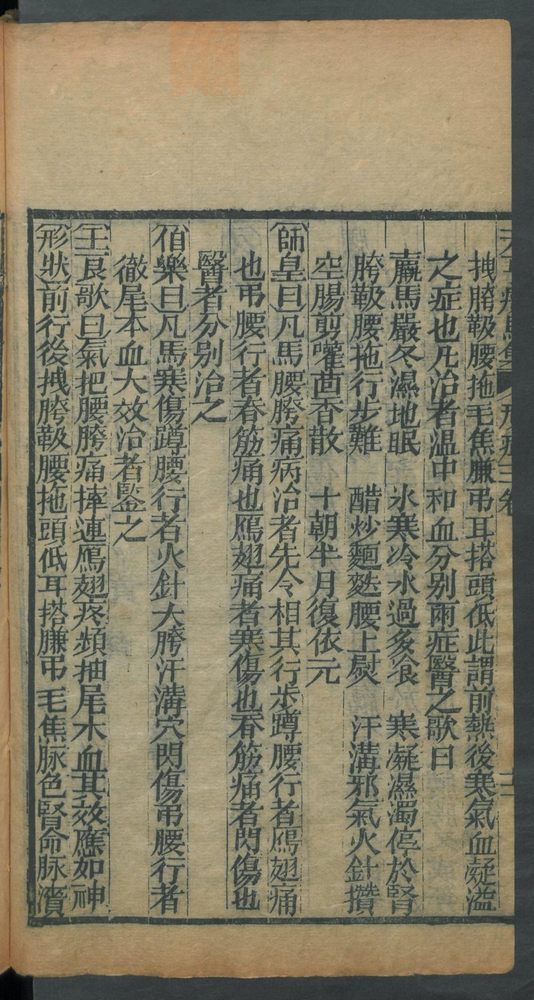 拽胯靸腰拖毛焦膁弔耳搭頭低此謂前熱後寒氣血凝溢
之症也凡治者溫中和血分别兩症醫之歌曰
羸馬嚴冬濕地眠　氷寒冷水過多飡　寒凝濕濁停於腎
胯靸腰拖行步難　醋炒麵麩腰上熨　汗溝邪氣火針攢
空腸剪嚾茴香散　十朝半月復依元
師皇曰凡馬腰胯痛病治者先令相其行步蹲腰行者鴈翅痛
也弔腰行者脊筋痛也鴈翅痛者寒傷也脊筋痛者閃傷也
醫者分别治之
伯樂曰凡馬寒傷蹲腰行者火針大胯汗溝穴閃傷弔腰行者
徹尾本血大效治者鑒之
王良歌曰氣把腰胯痛摔連鴈翅疼頻抽尾木血其效應如神
形狀前行後拽胯靸腰拖頭低耳搭膁弔毛焦脉色腎命脉瀆